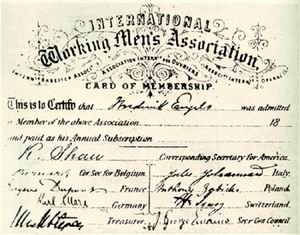 INTERNATIONAL
Working Men's Association
ASSOCIATION INTERN. DES OUVRIERS
CARD OF MEMBERSHIP.
This is to Certify that Frederick Engels was admitted
a Member of the above Association 18
and paid as his Annual Subscription
R. Shaw Corresponding Secretary for America.
Cor Sec for Belgium Italy.
Eugène Dupont France Anthony Zabicki Poland
Karl Marx Germany H. Jung Switzerland.
Treasurer. J. George Eccarius Secr Gen Council.